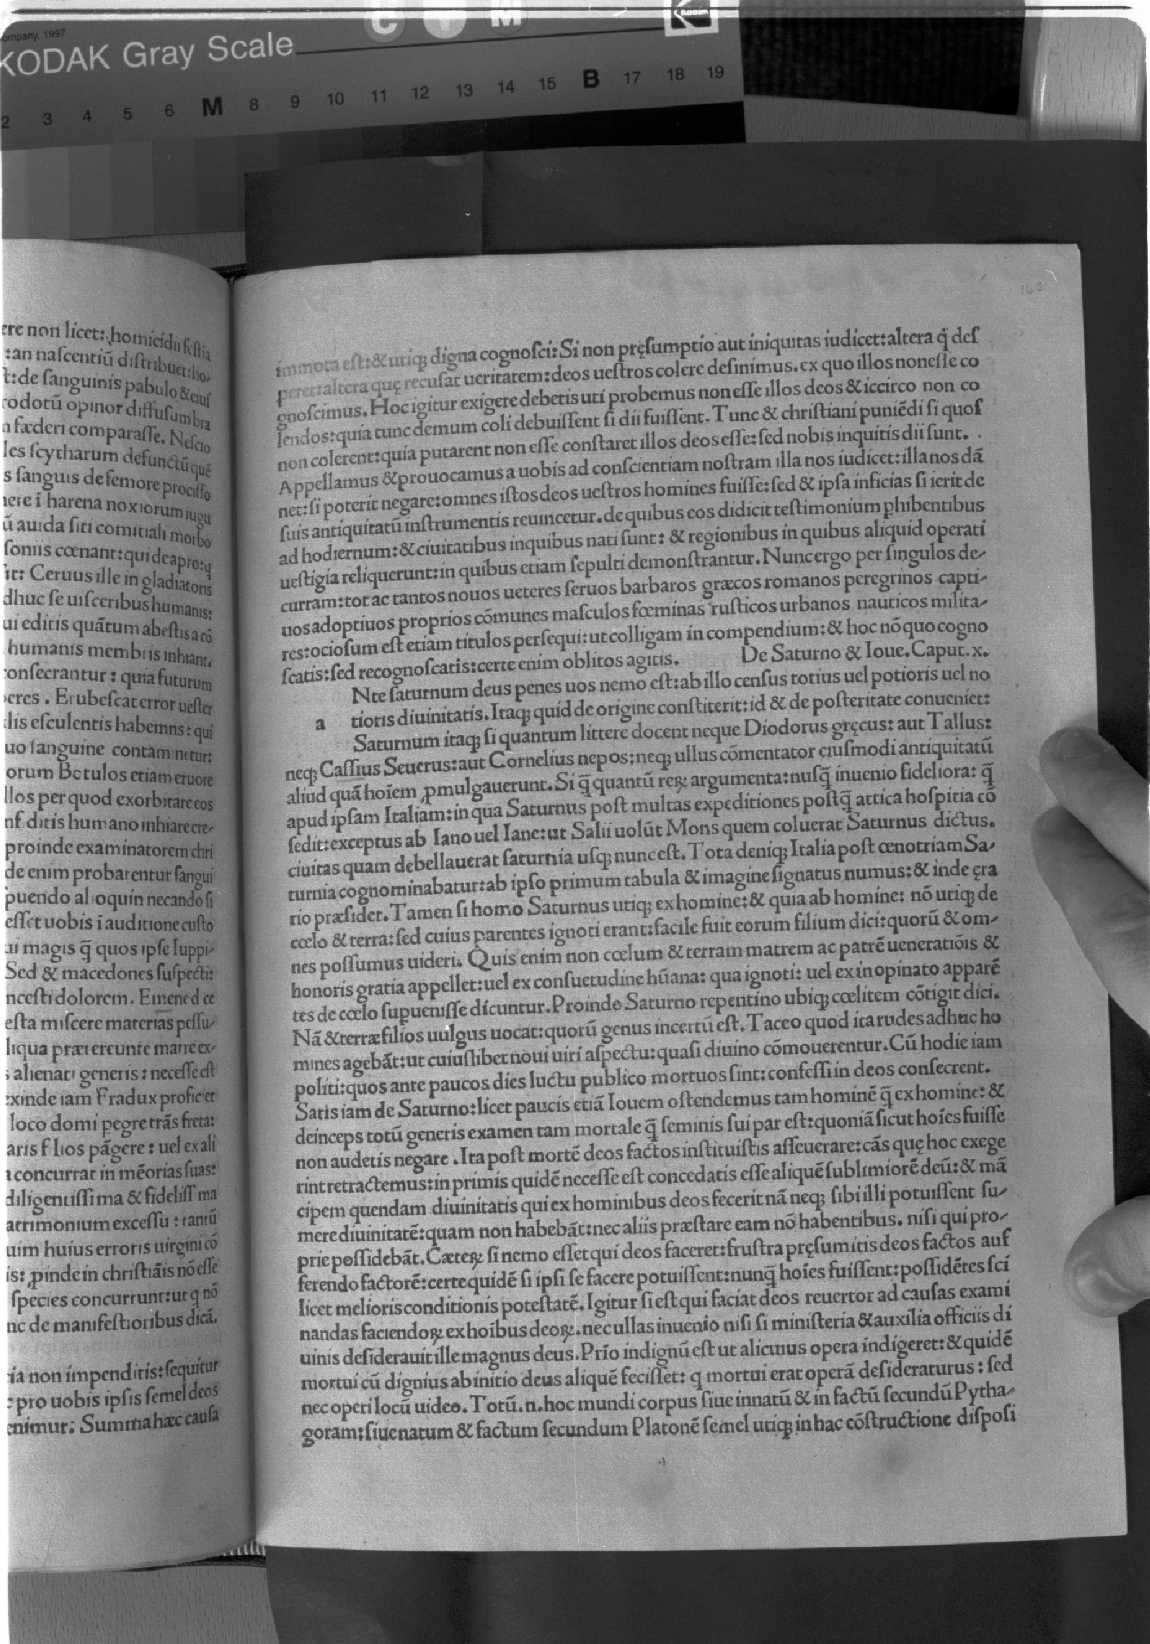 ompany, 1997
KODAK Gray Scale
C Y M
Kodak
2 3 4 5 6 M 8 9 10 11 12 13 14 15 B 17 18 19
ere non licet: homicidii festia
:an nascentiũ distribuet: ho-
t:de sanguinis pabulo & eius
rodotũ opinor diffusum bra
n fæderi comparasse. Nescio
les scytharum defunctũ quẽ
s sanguis de femore procisso
nere ĩ harena noxiorum iugu
ũ auida siti comitiali morbo
soniis cœnant: qui de apro: ꝗ
sit: Ceruus ille in gladiatoris
dhuc se uisceribus humanis:
ui editis quãtum abestis a cõ
humanis membris inhiant.
consecrantur: quia futurum
beres. Erubescat error uester
lis esculentis habemns: qui
uo sanguine contaminetur:
orum Botulos etiam cruore
llos per quod exorbitare eos
nf ditis humano inhiare cre-
proinde examinatorem chri
de enim probarentur sangui
puendo alioquin necando si
esset uobis ĩ auditione custo
ui magis q̃ quos ipse Iuppi-
Sed & macedones suspecti:
ncesti dolorem.
esta miscere materias passu-
liqua prætereunte matre ex-
s alienati generis: necesse est
exinde iam Fradux proficiet
loco domi pegre trãs freta:
aris f lios pãgere: uel ex ali
a concurrat in mẽorias suas:
diligentissi ma & fidelissi ma
atrimonium excessu: tantũ
uim huius erroris uirgini cõ
is: ꝓinde in christiãis nõ esse
species concurrunt: ut q nõ
nc de manifestioribus dicã.
ria non impenditis: sequitur
: pro uobis ipsis semel deos
enimur: Summa hæc causa
163
immota est:& utiqꝫ digna cognosci: Si non pręsumptio aut iniquitas iudicet: altera q̃ des
peret: altera quę recusat ueritatem: deos uestros colere desinimus. ex quo illos non esse co
gnoscimus. Hoc igitur exigere debetis uti probemus non esse illos deos & iccirco non co
lendos: quia tunc demum coli debuissent si dii fuissent. Tunc & christiani puniẽdi si quos
non colerent: quia putarent non esse constaret illos deos esse: sed nobis inquitis dii sunt.
Appellamus & prouocamus a uobis ad conscientiam nostram illa nos iudicet: illa nos dã
net: si poterit negare: omnes istos deos uestros homines fuisse: sed & ipsa inficias si ierit de
suis antiquitatũ instrumentis reuincetur. de quibus eos didicit testimonium phibentibus
ad hodiernum: & ciuitatibus inquibus nati sunt: & regionibus in quibus aliquid operati
uestigia reliquerunt: in quibus etiam sepulti demonstrantur. Nunc ergo per singulos de-
curram: tot ac tantos nouos ueteres seruos barbaros græcos romanos peregrinos capti-
uos adoptiuos proprios cõmunes masculos fœminas rusticos urbanos nauticos milita-
res: ociosum est etiam titulos persequi: ut colligam in compendium: & hoc nõ quo cogno
scatis: sed recognoscatis: certe enim oblitos agitis. De Saturno & Ioue. Caput. x.
Nte saturnum deus penes uos nemo est: ab illo census totius uel potioris uel no
a tioris diuinitatis. Itaqꝫ quid de origine constiterit: id & de posteritate conueniet:
Saturnum itaqꝫ si quantum littere docent neque Diodorus gręcus: aut Tallus:
neqꝫ Cassius Seuerus: aut Cornelius nepos: neqꝫ ullus cõmentator eiusmodi antiquitatũ
aliud quã hoĩem ꝓmulgauerunt. Si q̃ quantũ reꝝ argumenta: nusq̃ inuenio fideliora: q̃
apud ipsam Italiam: in qua Saturnus post multas expeditiones postq̃ attica hospitia cõ
sedit: exceptus ab Iano uel Iane: ut Salii uolũt Mons quem coluerat Saturnus dictus.
ciuitas quam debellauerat saturnia usqꝫ nunc est. Tota deniqꝫ Italia post œnotriam Sa-
turnia cognominabatur: ab ipso primum tabula & imagine signatus numus: & inde ęra
rio præsidet. Tamen si homo Saturnus utiqꝫ ex homine: & quia ab homine: nõ utiqꝫ de
cœlo & terra: sed cuius parentes ignoti erant: facile fuit eorum filium dici: quorũ & om-
nes possumus uideri. Quis enim non cœlum & terram matrem ac patrẽ uenerationis &
honoris gratia appellet: uel ex consuetudine hũana: qua ignoti: uel ex inopinato apparẽ
tes de cœlo supuenisse dicuntur. Proinde Saturno repentino ubiqꝫ cœlitem cõtigit dici.
Nã & terræ filios uulgus uocat: quorũ genus incertũ est. Taceo quod ita rudes adhuc ho
mines agebãt: ut cuiuslibet noui uiri aspectu: quasi diuino cõmouerentur. Cũ hodie iam
politi: quos ante paucos dies luctu publico mortuos sint: confessi in deos consecrent.
Satis iam de Saturno: licet paucis etiã Iouem ostendemus tam hominẽ q̃ ex homine: &
deinceps totũ generis examen tam mortale q̃ seminis sui par est: quoniã sicut hoĩes fuisse
non audetis negare. Ita post mortẽ deos factos instituistis asseuerare: cãs quę hoc exege
rint retractemus: in primis quidẽ necesse est concedatis esse aliquẽ sublimiorẽ deũ: & mã
cipem quendam diuinitatis qui ex hominibus deos fecerit nã neqꝫ sibi illi potuissent su-
mere diuinitatẽ: quam non habebãt: nec aliis præstare eam nõ habentibus. nisi qui pro-
prie possidebãt. Cæteꝝ si nemo esset qui deos faceret: frustra pręsumitis deos factos auf
ferendo factorẽ: certe quidẽ si ipsi se facere potuissent: nunq̃ hoĩes fuissent: possidẽtes sci
licet melioris conditionis potestatẽ. Igitur si est qui faciat deos reuertor ad causas exami
nandas faciendoꝝ ex hoĩbus deoꝝ. nec ullas inuenio nisi si ministeria & auxilia officiis di
uinis desiderauit ille magnus deus. Prĩo indignũ est ut alicuius opera indigeret: & quidẽ
mortui cũ dignius ab initio deus aliquẽ fecisset: q mortui erat operã desideraturus: sed
nec operi locũ uideo. Totũ. n. hoc mundi corpus siue innatũ & in factũ secundũ Pytha-
goram: siue natum & factum secundum Platonẽ semel utiqꝫ in hac cõstructione disposi